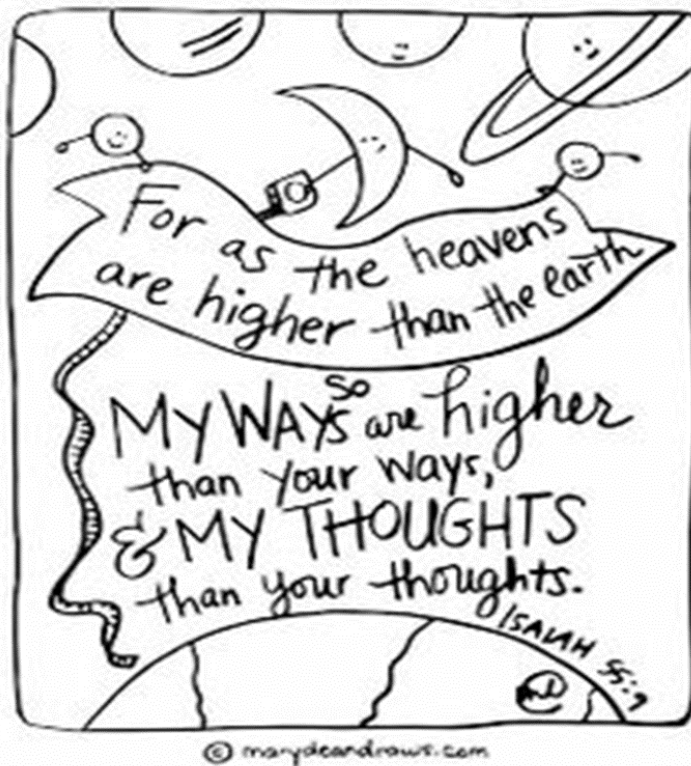 For as the heavens
are higher than the earth
so
MY WAYS are higher
than your ways,
& MY THOUGHTS
than your thoughts.
ISAIAH 55:9
© marydeandraws.com